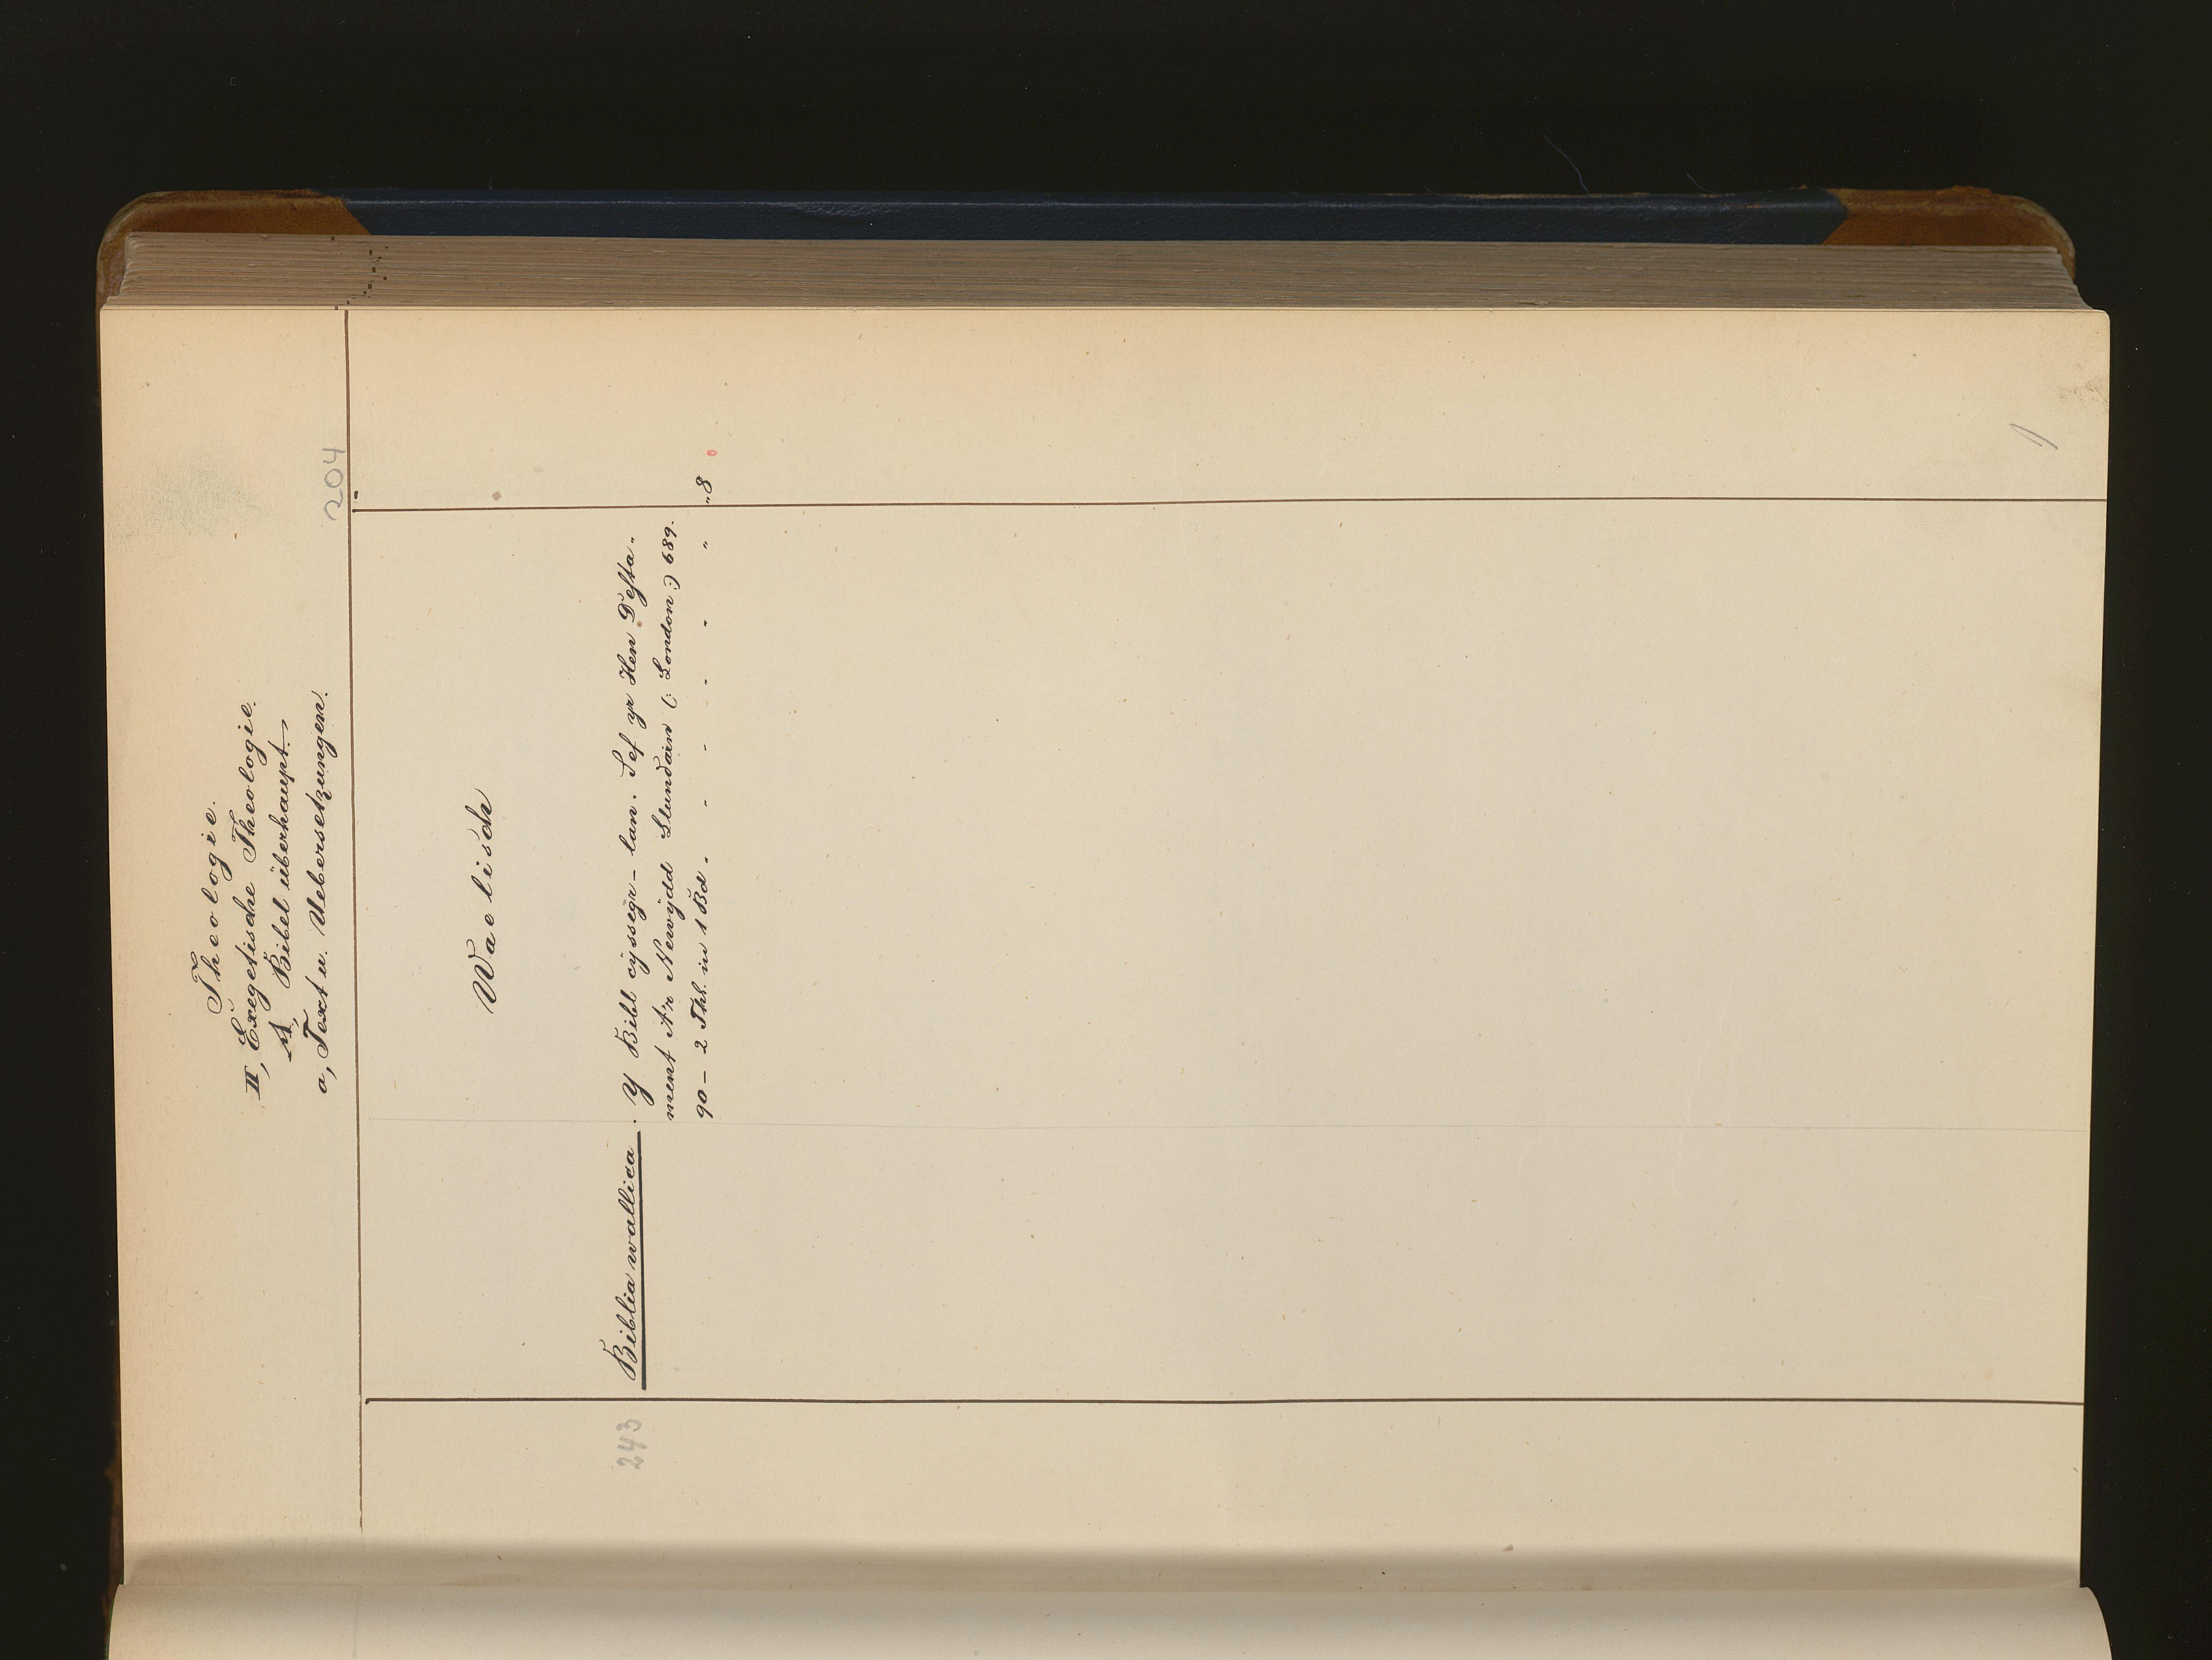 Theologie.
II, Exegetische Theologie.
A, Bibel überhaupt.
a, Text u. Uebersetzungen.
204
Waelisch
243
Biblia wallica. Y Bibl cyssegr-lan. Sef yr Hen Desta-
ment A'r Newydd Llundain (: London :) 689.
90 - 2 Thl. in 1 Bd. - - - - - " "8